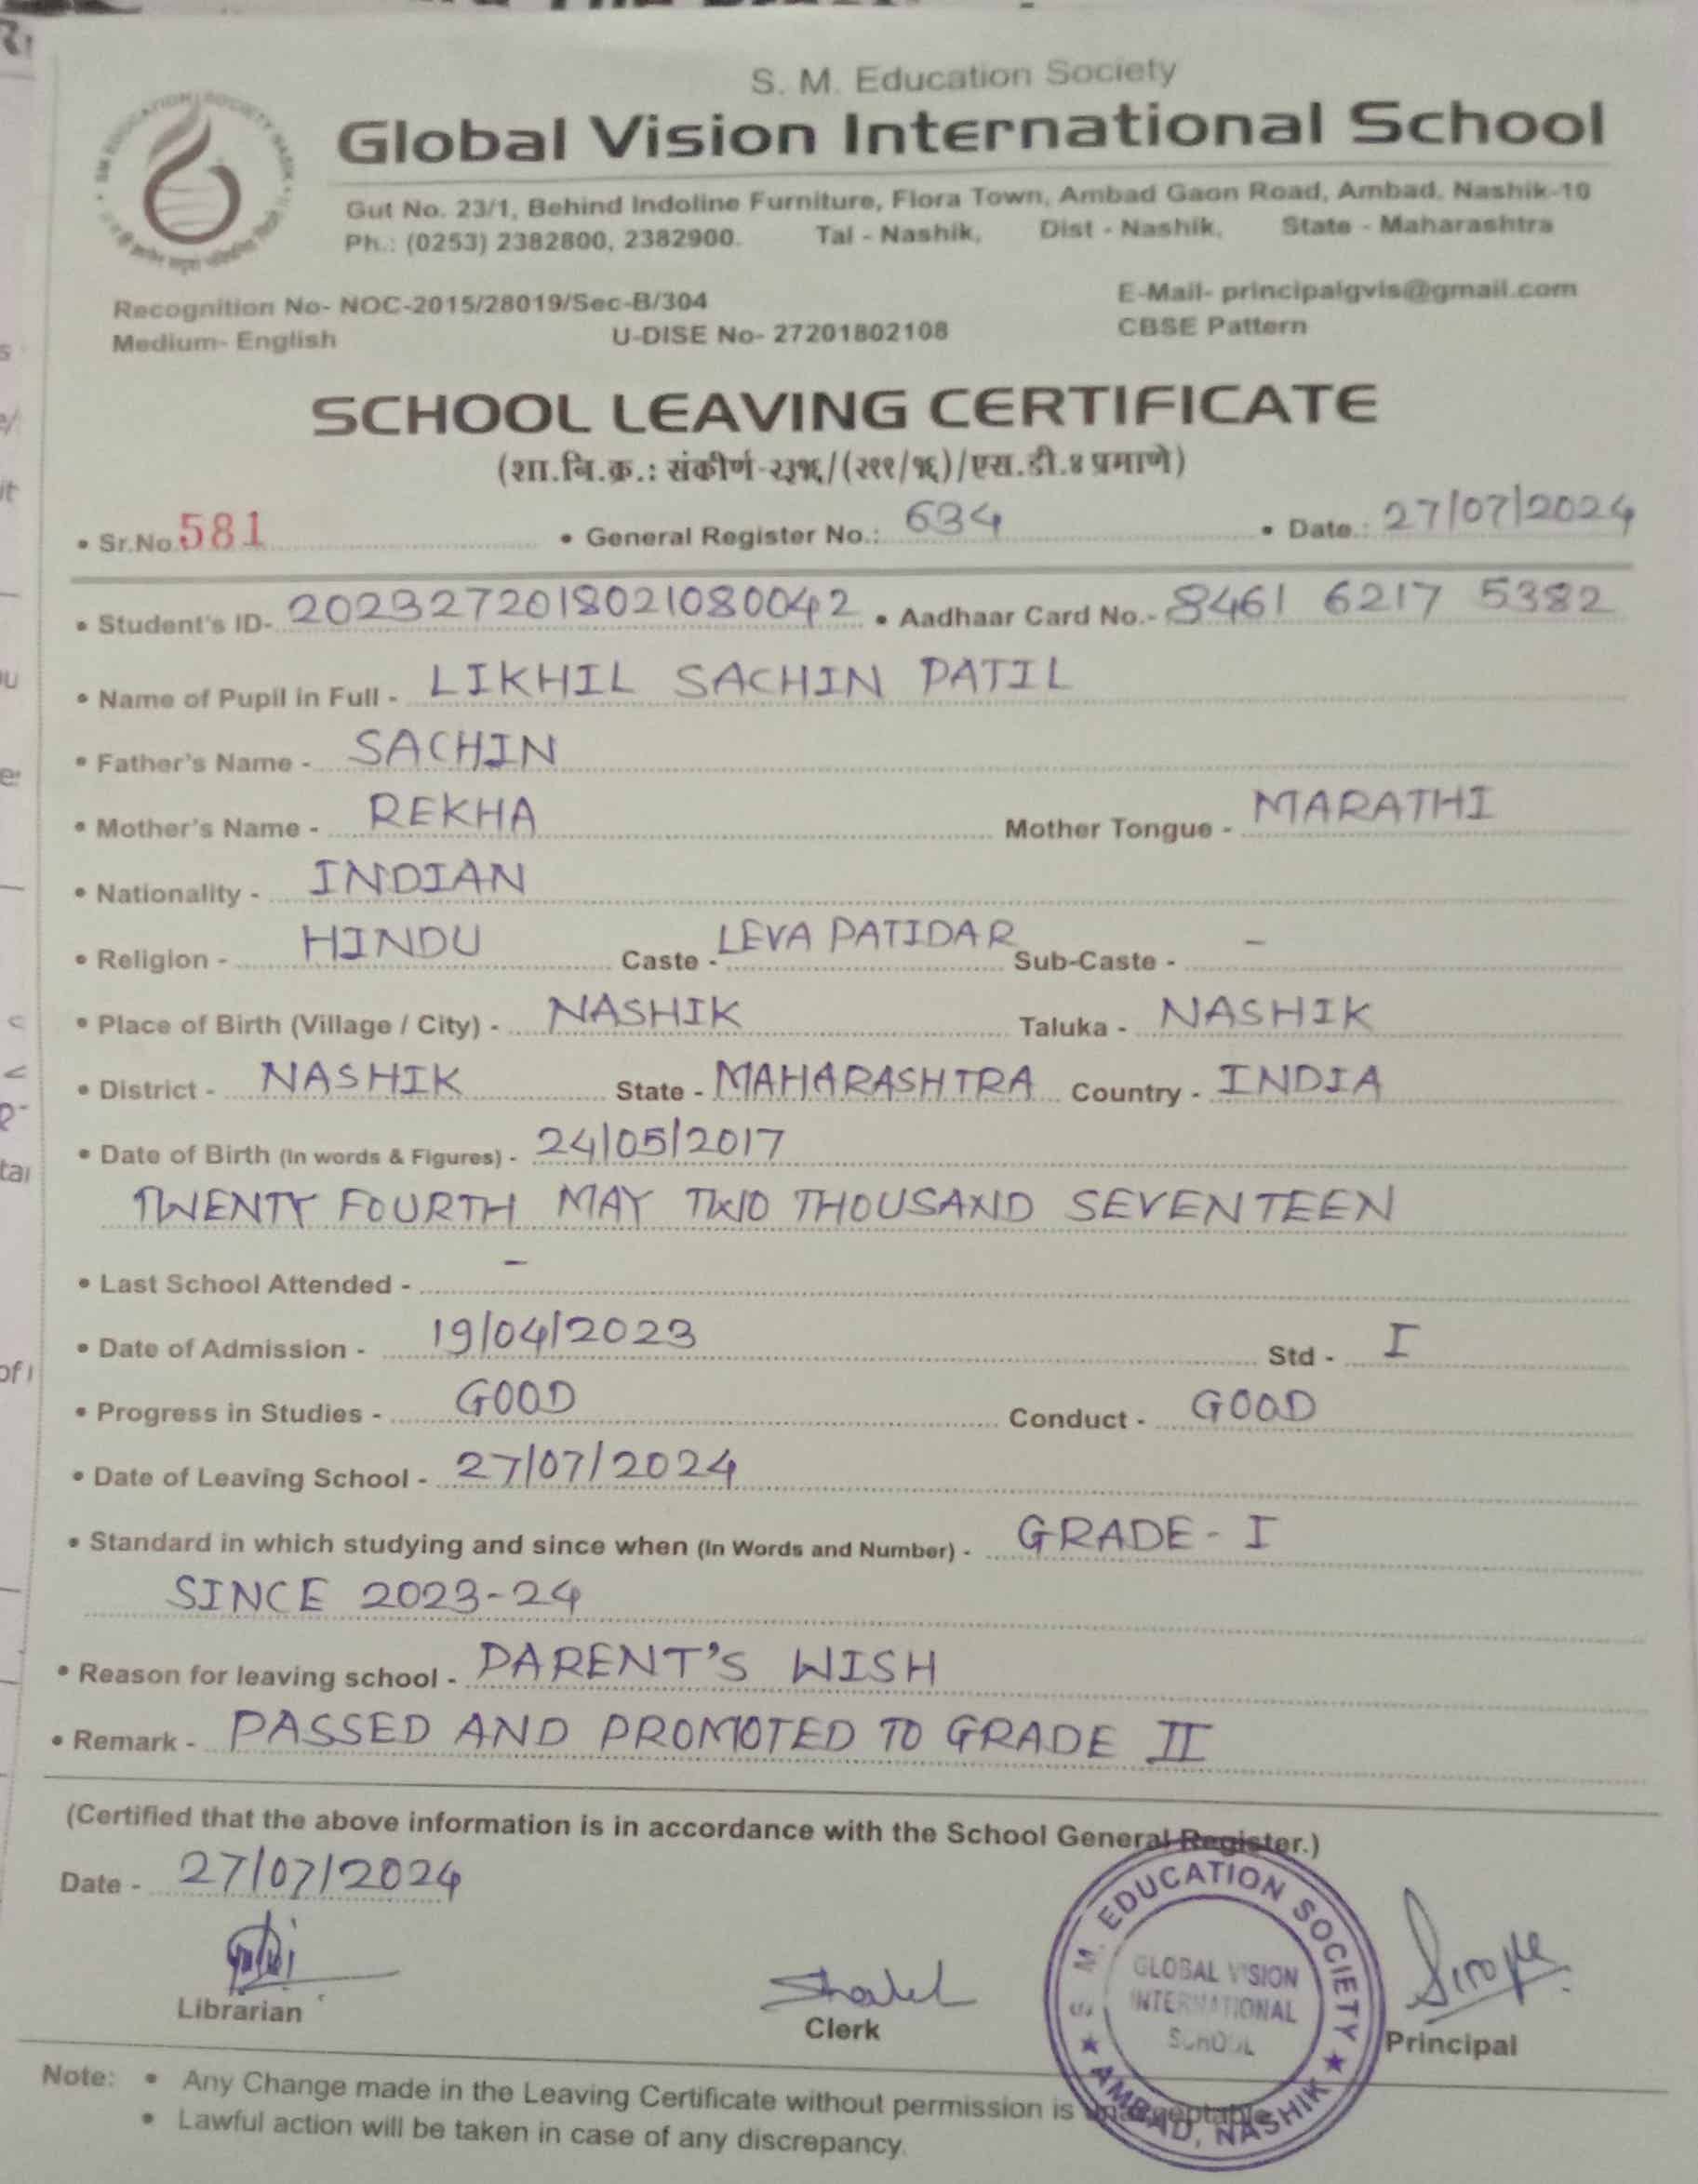 S. M. Education Society
Global Vision International School
Gut No. 23/1, Behind Indoline Furniture, Flora Town, Ambad Gaon Road, Ambad, Nashik-10
Ph.: (0253) 2382800, 2382900. Tal - Nashik, Dist - Nashik, State - Maharashtra
Recognition No- NOC-2015/28019/Sec-B/304 E-Mail- principalgvis@gmail.com
Medium- English U-DISE No- 27201802108 CBSE Pattern
SCHOOL LEAVING CERTIFICATE
(शा.नि.क्र.: संकीर्ण-२३१६/(२११/१६)/एस.डी.४ प्रमाणे)
• Sr.No. 581 • General Register No.: 634 • Date.: 27/07/2024
• Student's ID- 2023272018021080042 • Aadhaar Card No.- 8461 6217 5382
• Name of Pupil in Full - LIKHIL SACHIN PATIL
• Father's Name - SACHIN
• Mother's Name - REKHA Mother Tongue - MARATHI
• Nationality - INDIAN
• Religion - HINDU Caste - LEVA PATIDAR Sub-Caste - -
• Place of Birth (Village / City) - NASHIK Taluka - NASHIK
• District - NASHIK State - MAHARASHTRA Country - INDIA
• Date of Birth (In words & Figures) - 24/05/2017
TWENTY FOURTH MAY TWO THOUSAND SEVENTEEN
• Last School Attended - -
• Date of Admission - 19/04/2023 Std - I
• Progress in Studies - GOOD Conduct - GOOD
• Date of Leaving School - 27/07/2024
• Standard in which studying and since when (In Words and Number) - GRADE - I
SINCE 2023-24
• Reason for leaving school - PARENT'S WISH
• Remark - PASSED AND PROMOTED TO GRADE II
(Certified that the above information is in accordance with the School General Register.)
Date - 27/07/2024
S. M. EDUCATION SOCIETY
GLOBAL VISION
INTERNATIONAL
SCHOOL
★ AMBAD, NASHIK ★
Librarian Clerk Principal
Note: • Any Change made in the Leaving Certificate without permission is unacceptable
• Lawful action will be taken in case of any discrepancy.